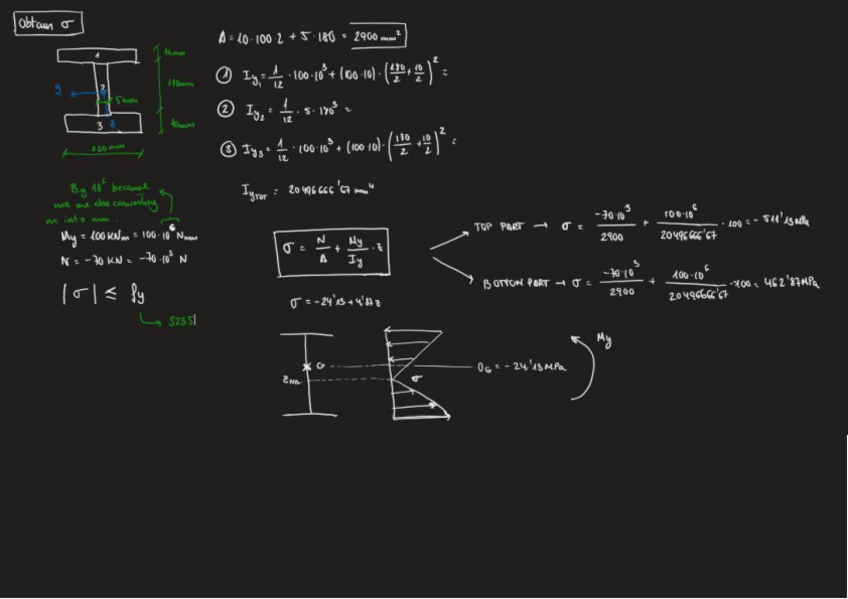 Obtain σ
1
10mm
y
2
5mm
180mm
3
z
10mm
100mm
A = 10·100·2 + 5·180 = 2900 mm²
① Iy₁ = 1/12 · 100·10³ + (100·10) · (180/2 + 10/2)² =
② Iy₂ = 1/12 · 5 · 180³ =
③ Iy₃ = 1/12 · 100·10³ + (100·10) · (180/2 + 10/2)² =
IyTOT = 20496666'67 mm⁴
By 10⁶ because
we are also converting
m into mm.
My = 100 KNm = 100·10⁶ Nmm
N = -70 KN = -70·10³ N
|σ| ≤ fy
S235
σ = N/A + My/Iy · z
σ = -24'13 + 4'87z
TOP PART → σ = -70·10³/2900 + 100·10⁶/20496666'67 · -100 = -511'13 MPa
BOTTOM PART → σ = -70·10³/2900 + 100·10⁶/20496666'67 · 100 = 462'87 MPa
G
σG = -24'13 MPa
σ
My